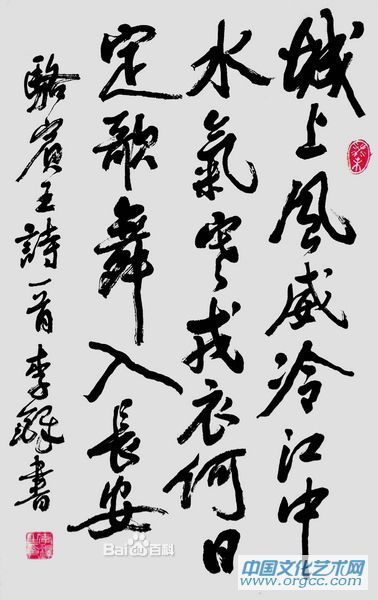 城上風威冷江中
水氣寒戎衣何日
定歌舞入長安
駱賓王詩一首李鐸書
Bai 百科
中国文化艺术网
www.orgcc.com